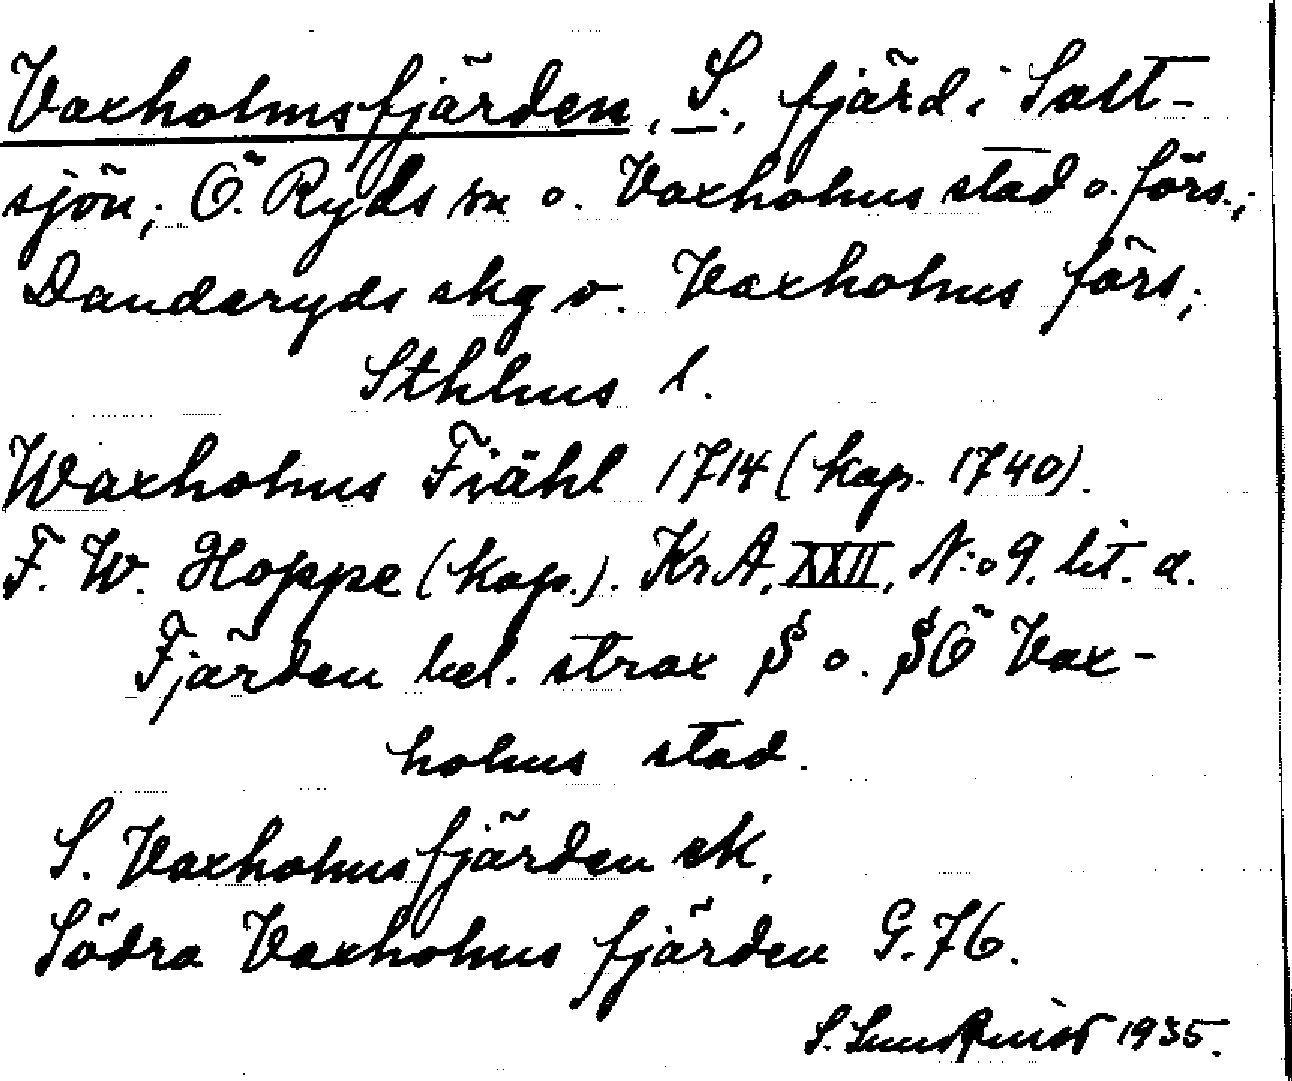 Vaxholmsfjärden, S., fjärd i Salt-
sjön; Ö. Ryds sn o. Vaxholms stad o. förs.;
Danderyds skg o. Vaxholms förs.;
Sthlms l.
Waxholms Fiähl 1714 (kop. 1740).
F. W. Hoppe (kop.). KrA, XXII, N:o 9. lit. a.
Fjärden bel. strax S o. SÖ Vax-
holms stad.
S. Vaxholmsfjärden ek.
Södra Vaxholms fjärden G. 76.
S. Lundquist 1935.